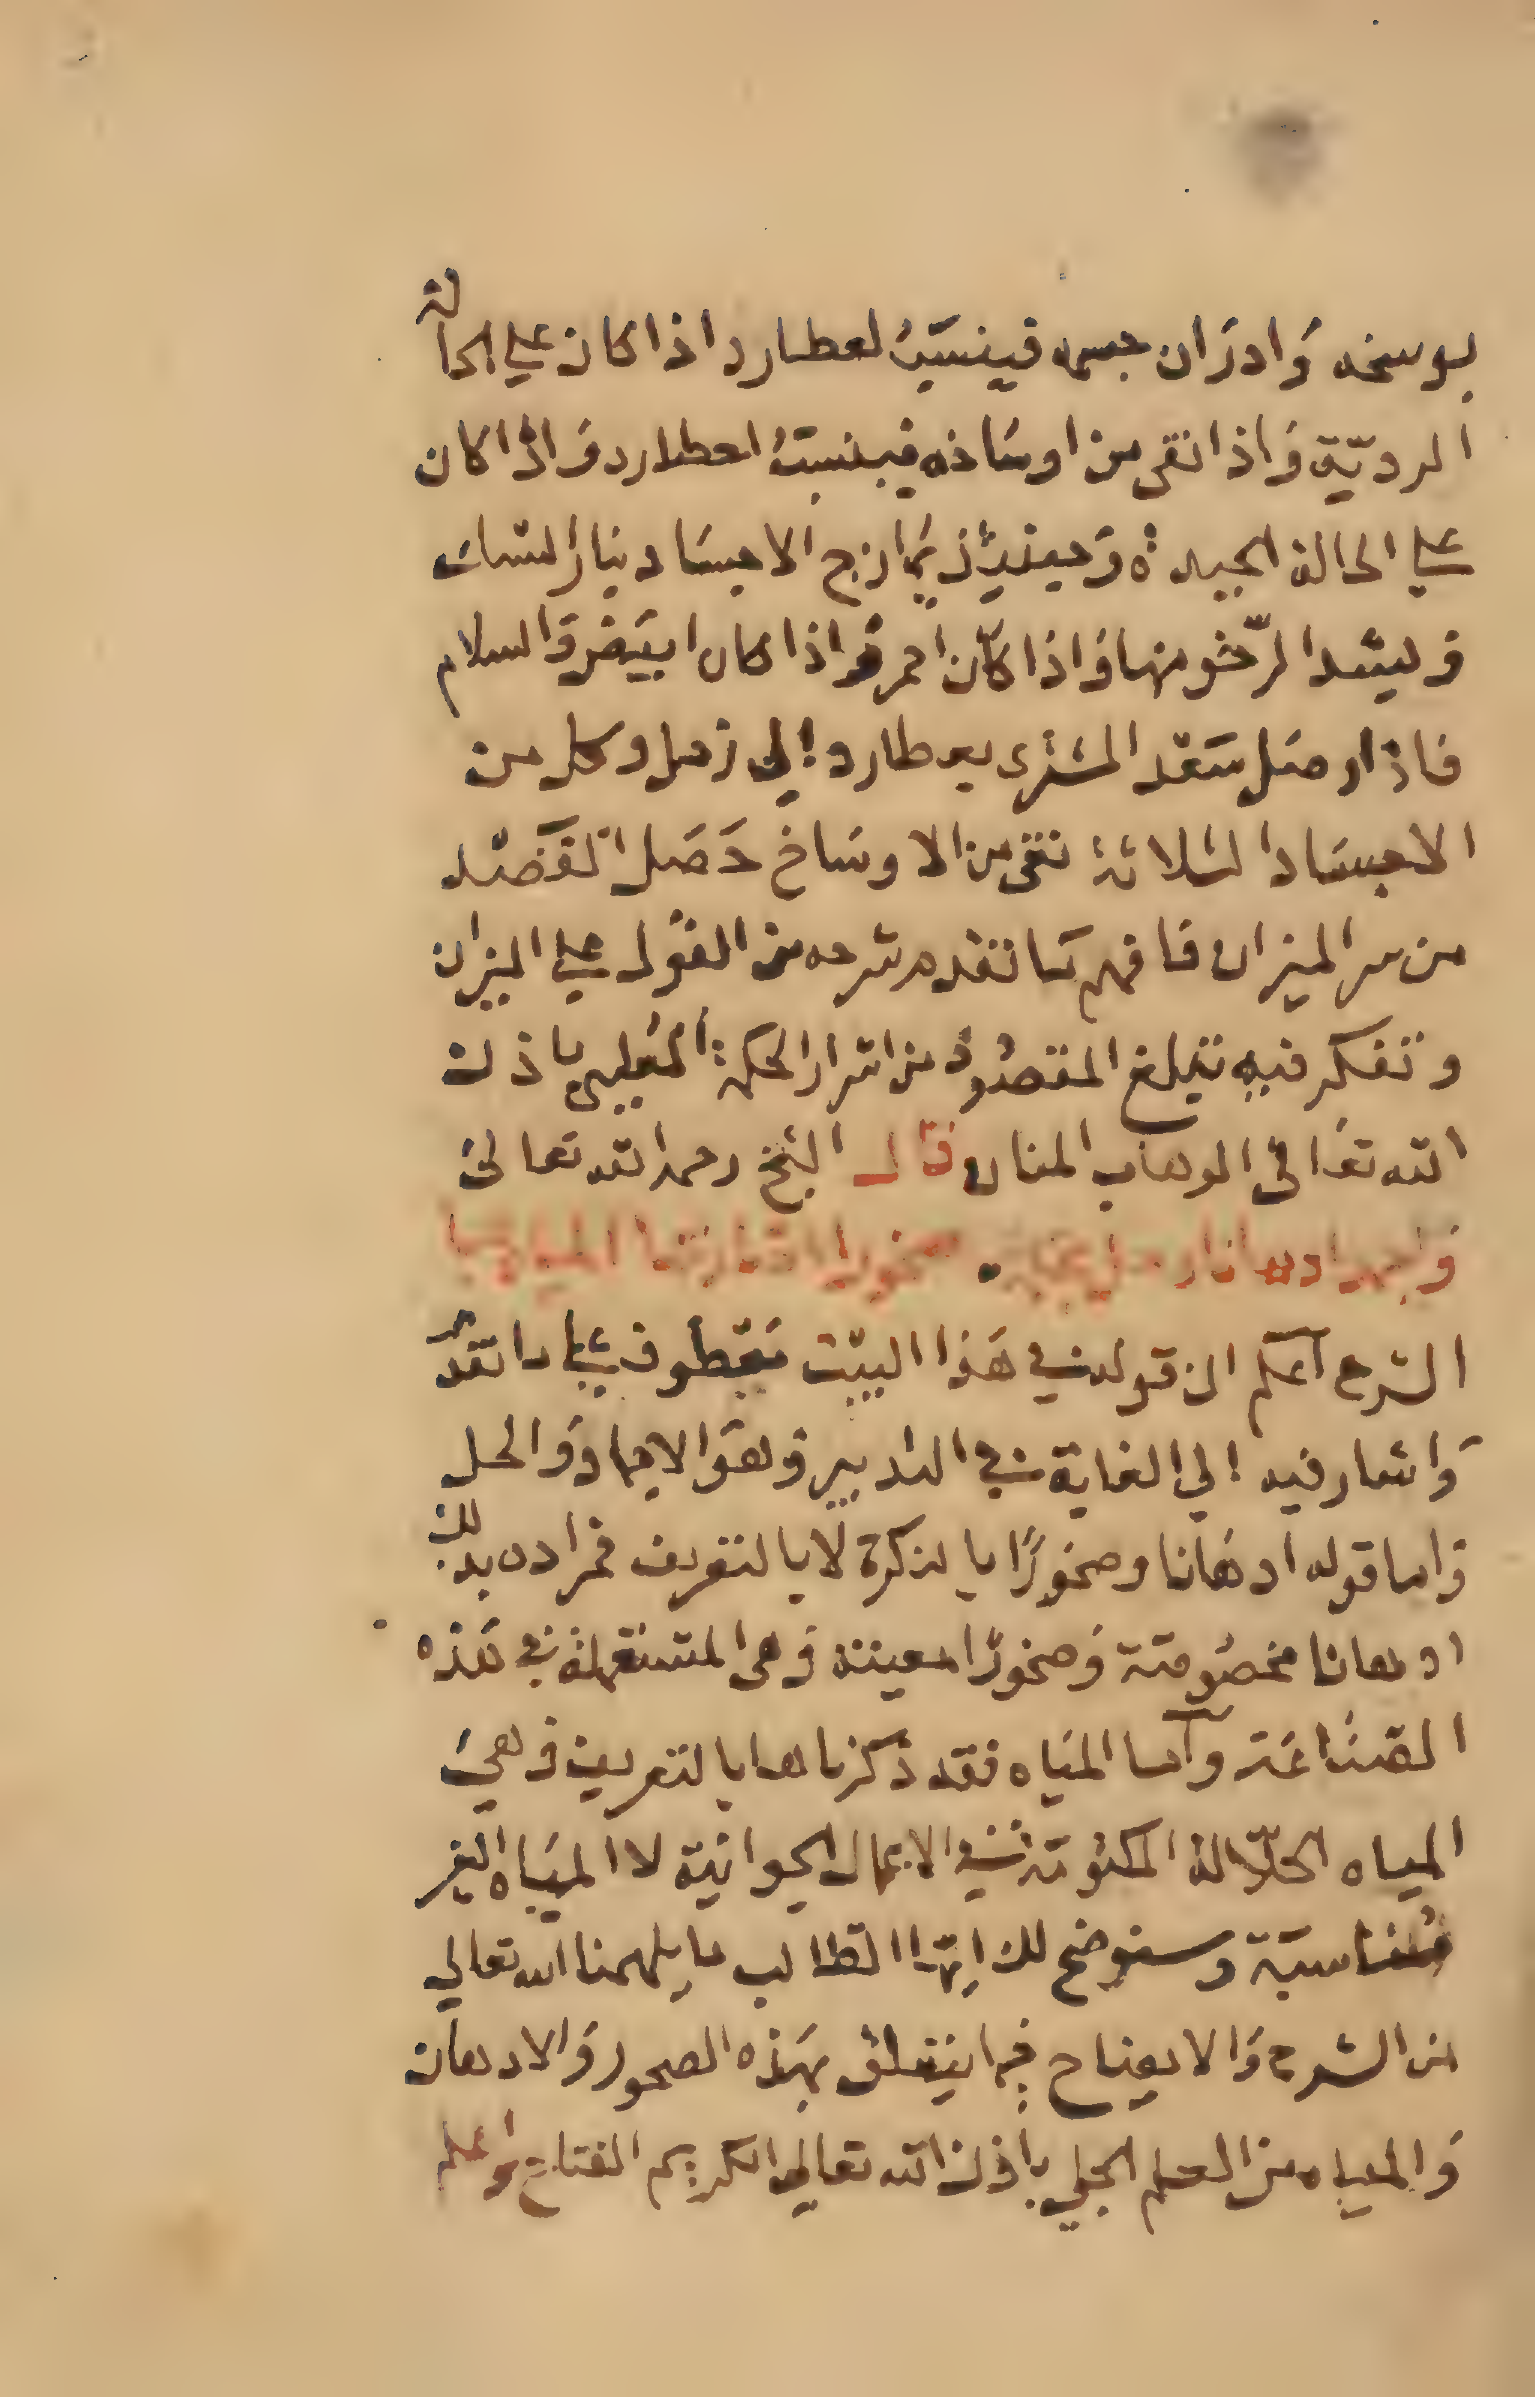 بوسخه وَادرَان جسمه فينسَبُ لعطارد اذا كان علي الحالة
الرديّة وَاذا انقى من اوسَاخه فينسبُ لعطارد وَاذا كان
علي الحالة الجيدة وَحينئذٍ يمازج الاجسَاد بنار السبك
وَيشد الرّخو منها وَاذا كان احمر وَاذا كان ابيَض وَالسلام
فاذا وصَل سَعد المشترى بعطارد إلى زحل وكل من
الاجسَاد الثلاثة نقى من الاوسَاخ حَصَل القَصْد
من سر الميزان فافهم مَا تقدم شرحه من القول علي الميزان
وتفكر فيه تبلغ المقصُود من اسرار الحكمة المعليى باذن
الله تعَالى الوهاب المنان قال الشيخ رحمه الله تعالى
الشرح اعلم ان قوله في هَذا البيت مَعطوف علي ما تقدم
وَاشار فيه إلي الغاية في التدبير وَهوَ الاجماد وَالحل
وَاما قوله ادهَانا وصخورًا بالنكرة لا بالتعريف فمراده بذلك
ادهانا مخصُوصَة وَصخورًا معينة وَهى المستعملة في هَذه
الصّنَاعَة وَاما المَيَاه فقد ذكرناها بالتعريف وَهيَ
المياه الحلّالة المكتومَة في الاعمال الجوانيّة لا الميَاه الغير
مُناسبَة وسنوضح لك ايّها الطالب ما يلهمنا الله تعالي
من الشرح وَالايضاح فيما يتعلق بهَذه الصخور وَالادهان
وَالمياه من العلم الجلي باذن الله تعالي الكريم الفتاح واعلم